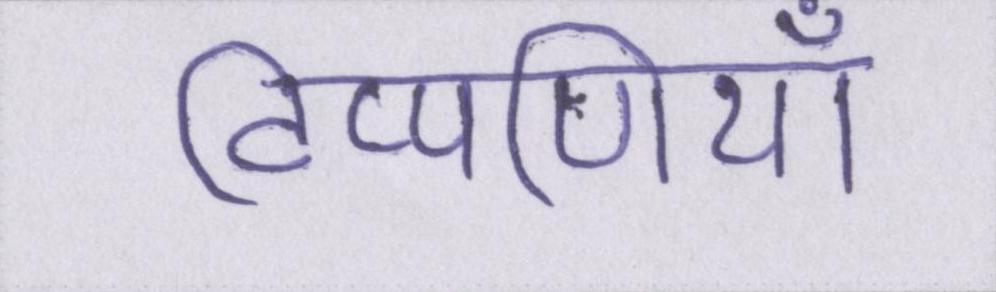 टिप्पणियाँ